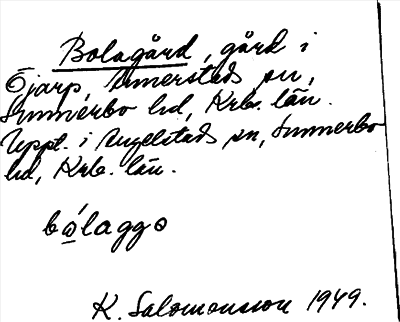 Bolagård, gård i
Öjarp, Annerstads sn,
Sunnerbo hd, Krb. län.
Uppt. i Angelstads sn, Sunnerbo
hd, Krb. län.
bólaggo
K. Salomonsson 1949.